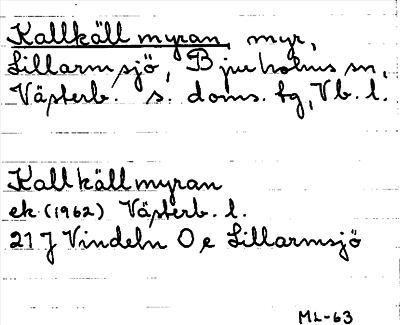 Kallkällmyran, myr,
Lillarmsjö, Bjurholms sn,
Västerb. s. doms. fg, Vb. l.
Kallkällmyran
ek (1962) Västerb. l.
21 J Vindeln O e Lillarmsjö
ML-63